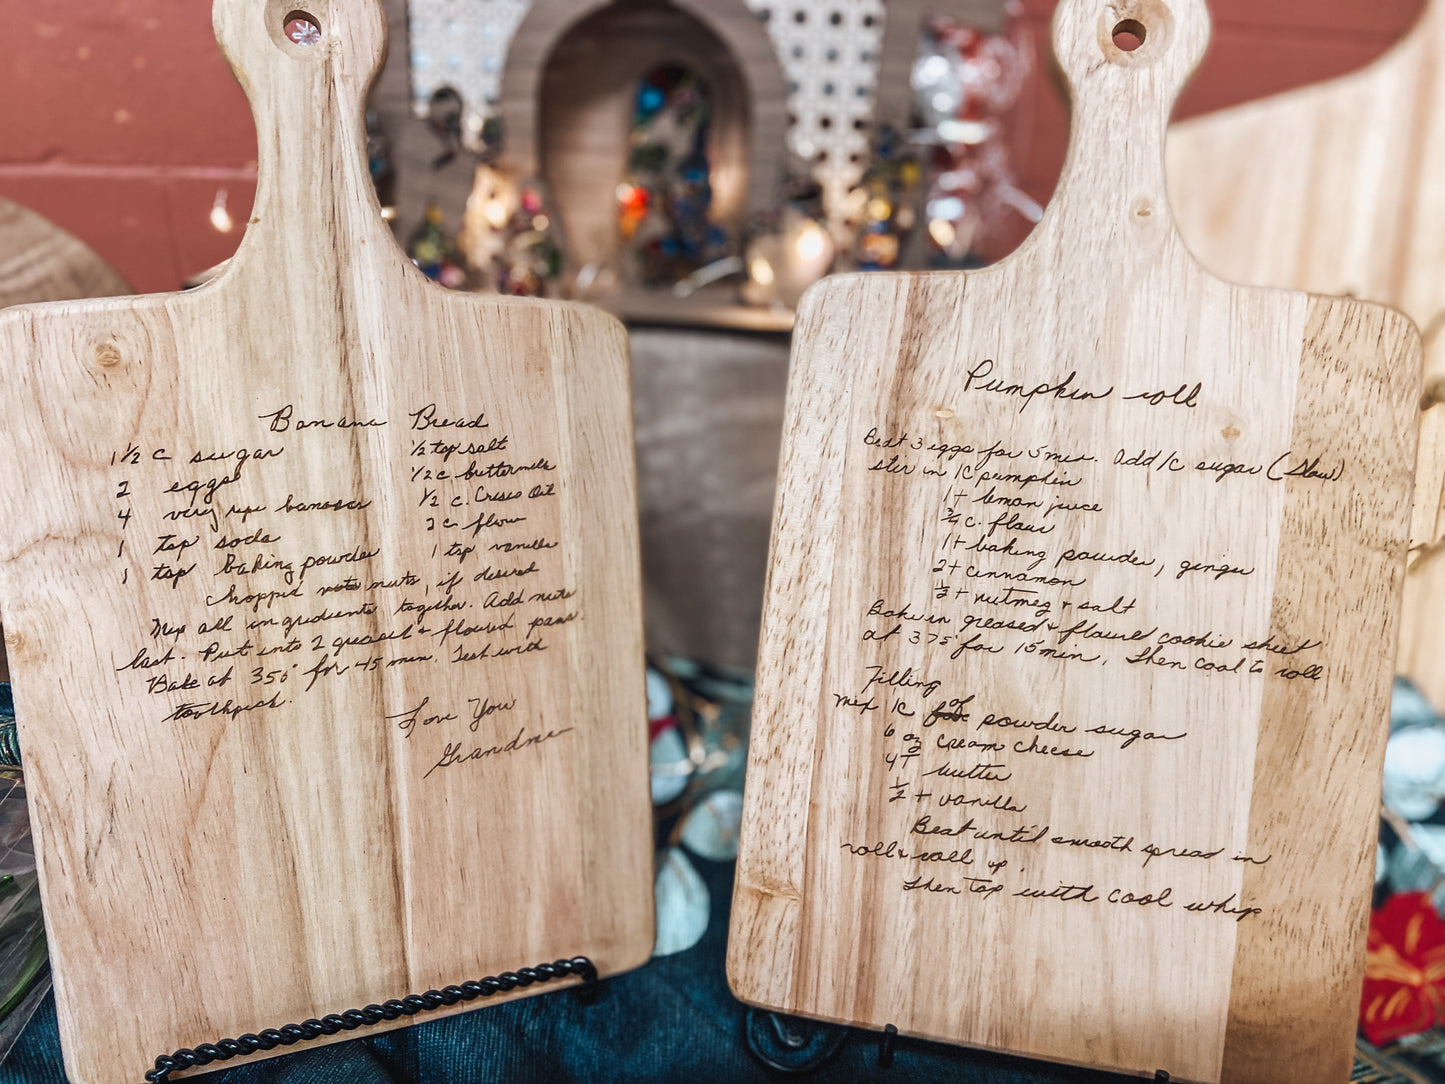 Banana Bread
1½ c sugar
2 eggs
4 very ripe bananas
1 tsp soda
1 tsp baking powder
½ tsp salt
½ c. buttermilk
½ c. Crisco Oil
2 c flour
1 tsp vanilla
chopped nuts, if desired
Mix all ingredients together. Add nuts
last. Put into 2 greased + floured pans.
Bake at 350° for 45 min. Test with
toothpick.
Love You
Grandma
Pumpkin roll
Beat 3 eggs for 5 min. Add 1c sugar (Slow)
stir in 1c pumpkin
1 t lemon juice
¾ c. flour
1 t baking powder, ginger
2 t cinnamon
½ t nutmeg + salt
Bake in greased + floured cookie sheet
at 375° for 15 min. Then cool to roll
Filling
mix 1c of powder sugar
6 oz cream cheese
4 T butter
½ t vanilla
Beat until smooth spread in
roll + roll up.
Then top with cool whip